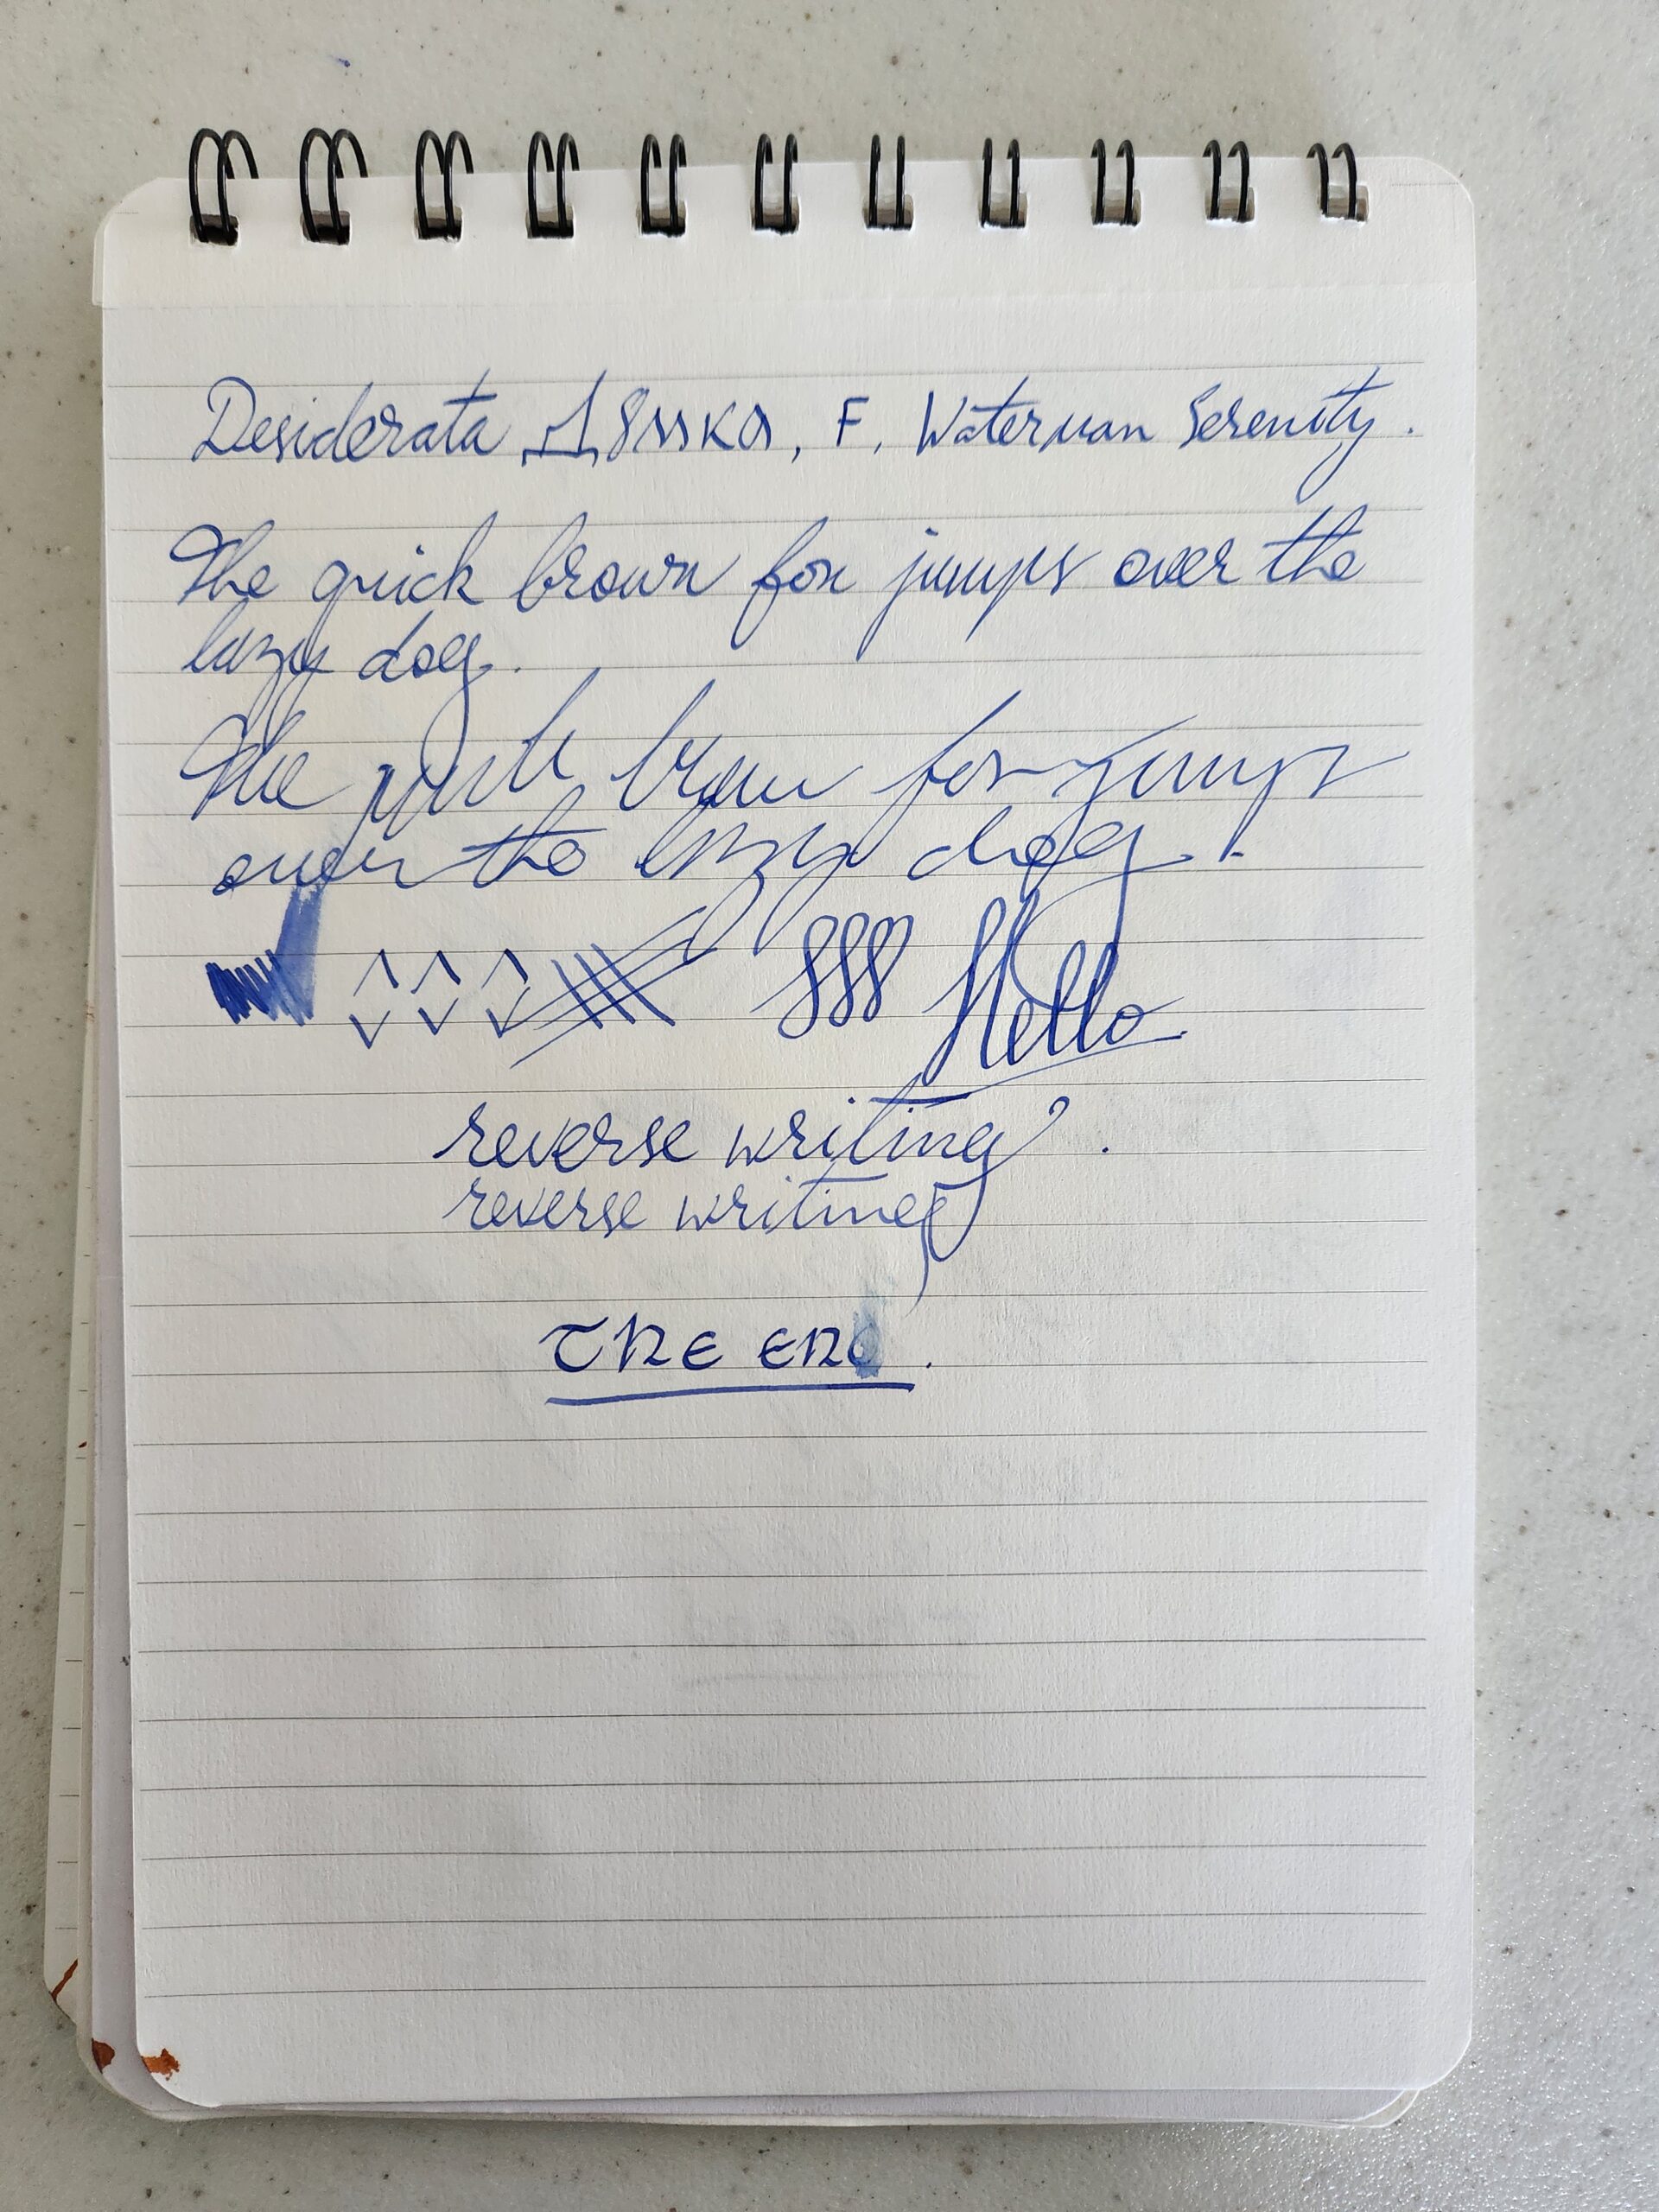 Desiderata , F, Waterman Serenity.
The quick brown fox jumps over the
lazy dog.
The quick brown fox jumps
over the lazy dog.
Hello
reverse writing.
reverse writing
The End.